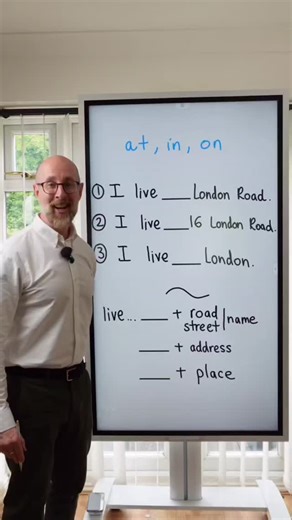 at, in, on
① I live ___ London Road.
② I live ___ 16 London Road.
③ I live ___ London.
live... ___ + road / name
street
___ + address
___ + place